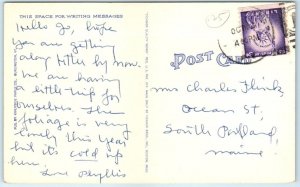 THIS SPACE FOR WRITING MESSAGES
Hello Jo, hope
you are getting
along better by now.
we are having
a little trip for
ourselves. The
foliage is very
lovely this year
but it's cold up
here
Love Phyllis
POST CARD
Mrs Charles Flink
Ocean St,
South Portland,
Maine.